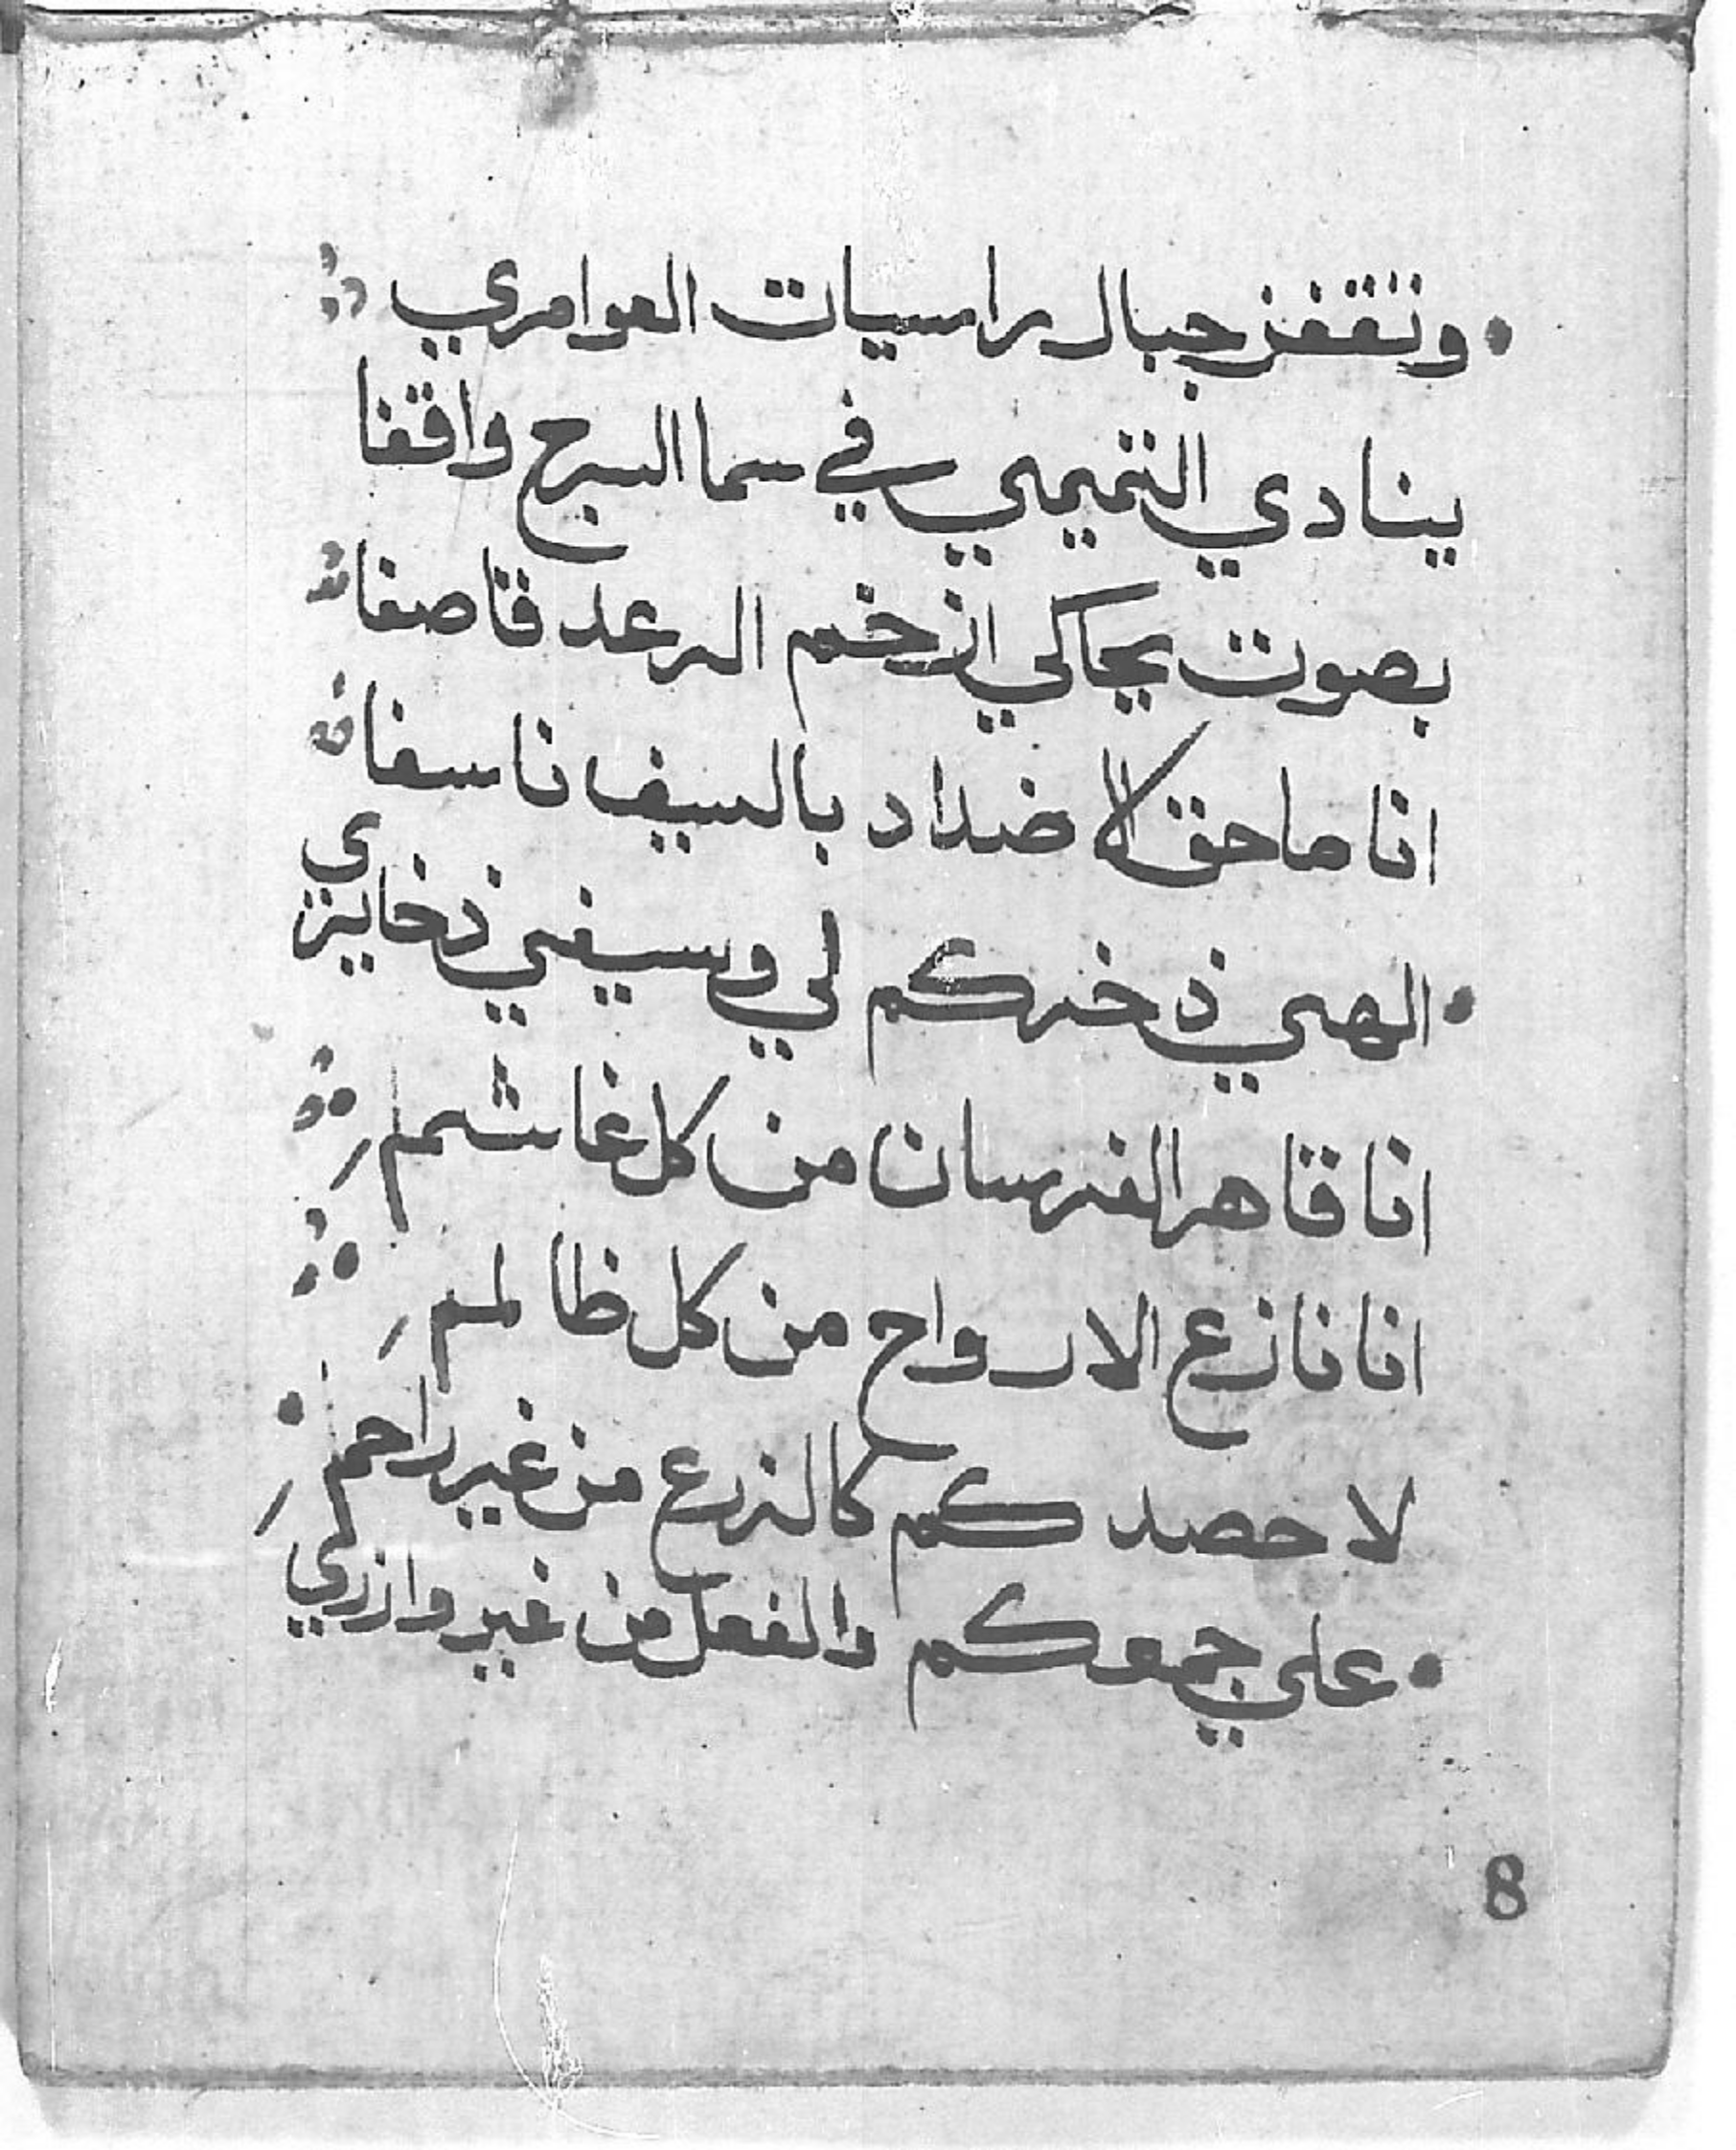 • وتقفز جبال راسيات العوامري
ينادي التميمي في سما السرج واقفا
بصوت يحاكي ازخم الرعد قاصفا
انا ماحق الاضداد بالسيف ناسفا
• الهي ذخركم لي وسيفي ذخايري
انا قاهر الفرسان من كل غاشم
انا نازع الارواح من كل ظالم
لاحصدكم كالزرع من غير راحم
• علي جمعوكم والفعل من غير وازري
8